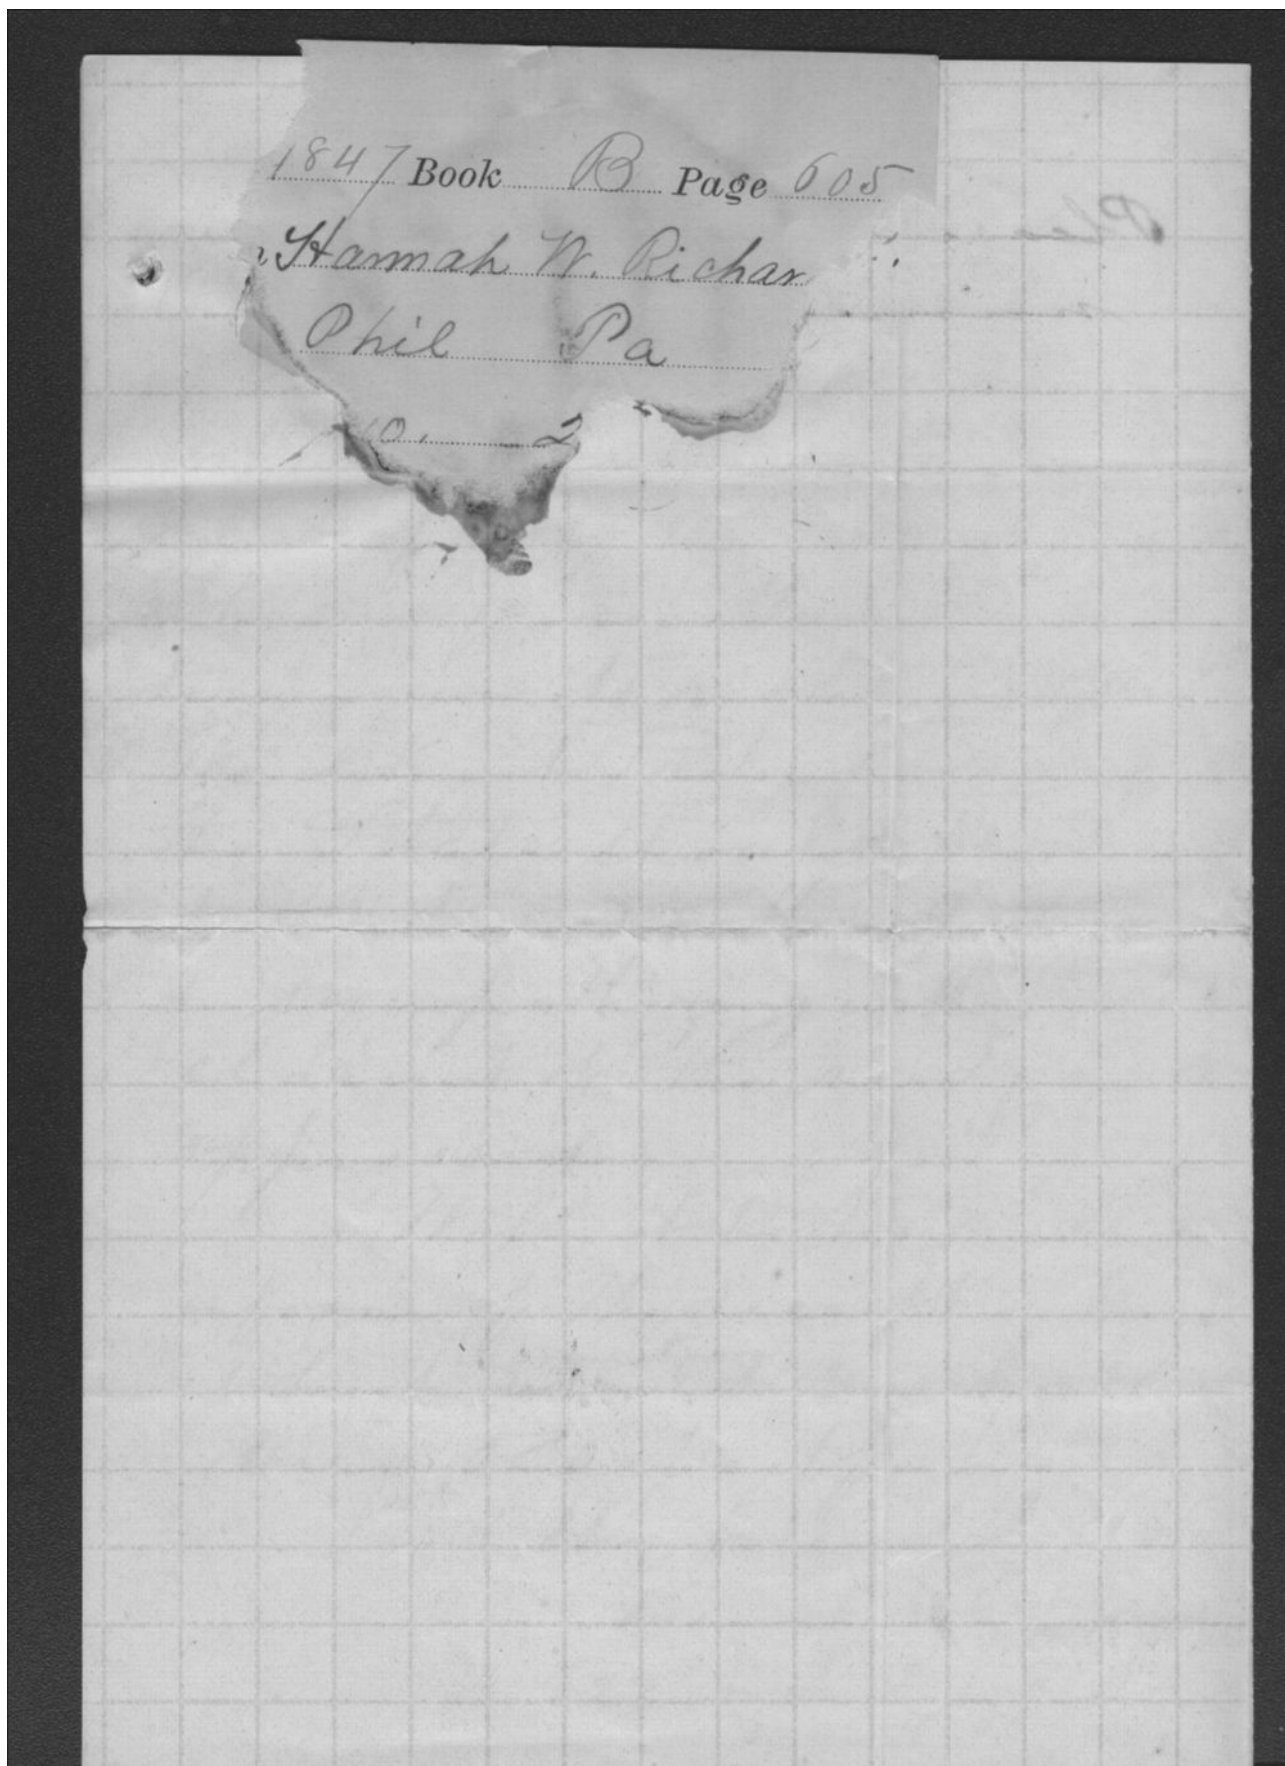 1847 Book B Page 605
Hannah W. Richar
Phil Pa
2